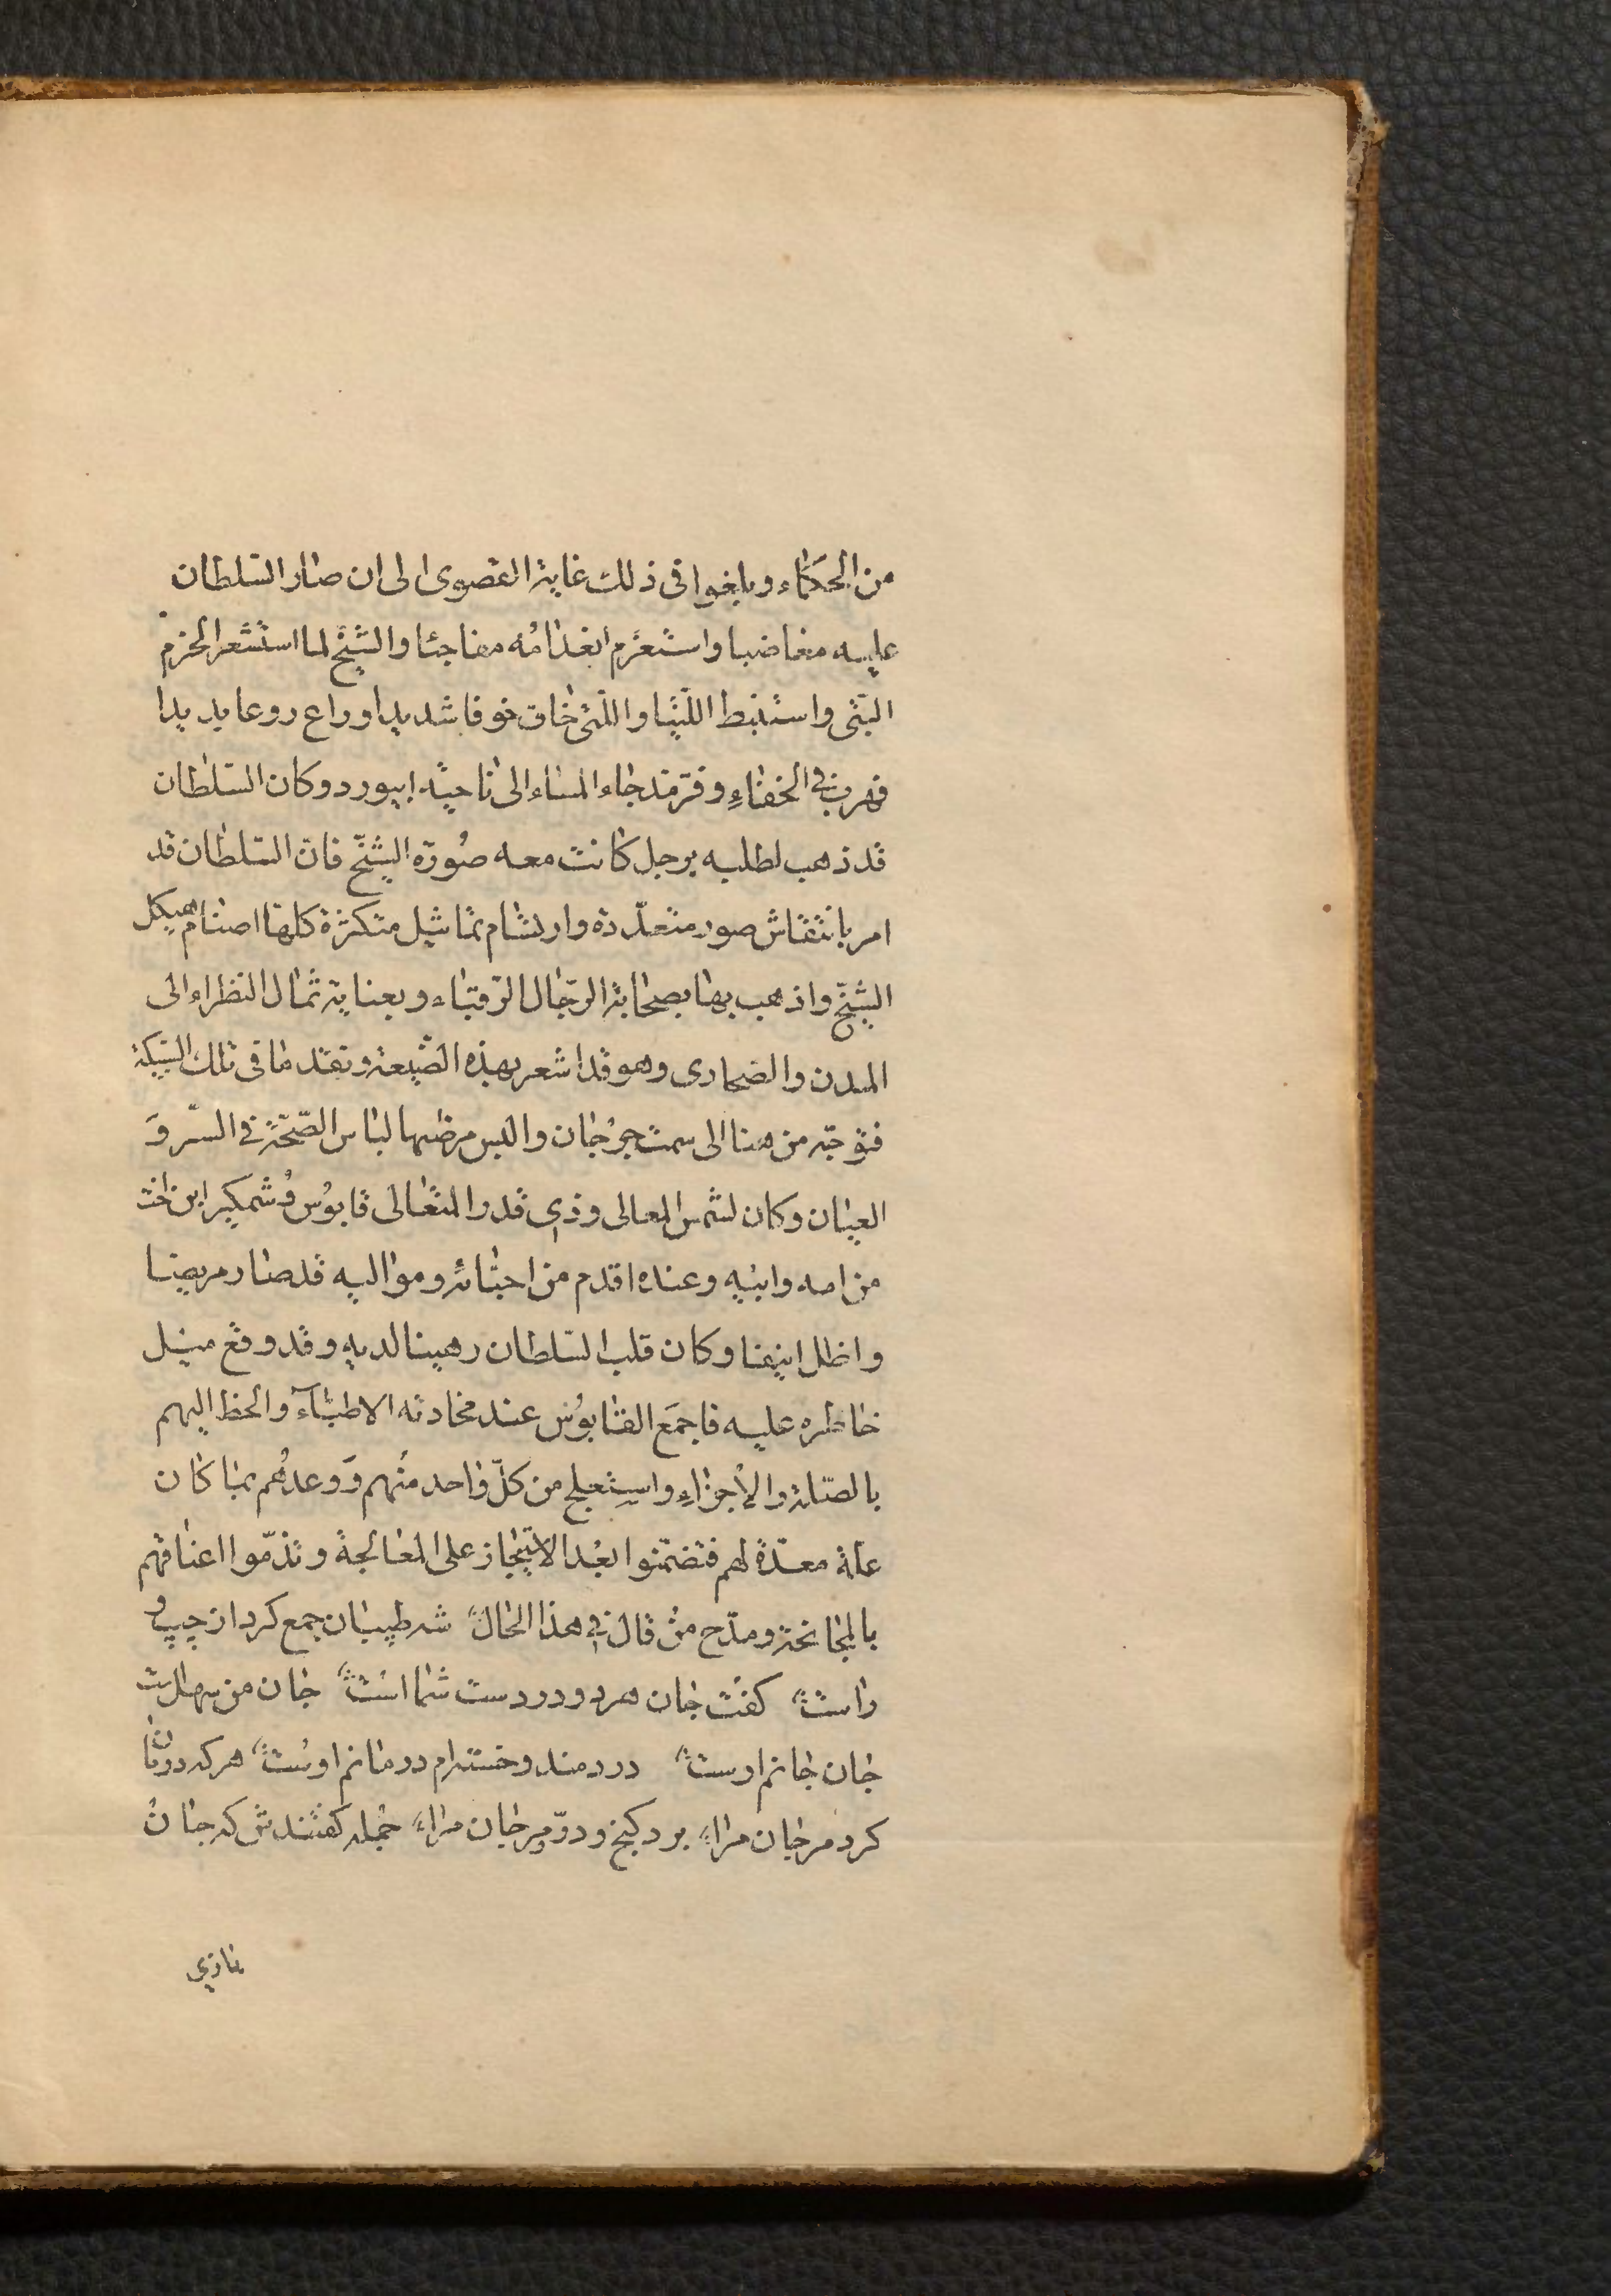 من الحكماء وبلغوا فى ذلك غاية القصوى الى ان صار السّلطان
عليه مغاضبا واستعزم انعدامُه مفاجئا والشّيخ لما استشعر الحزم
البتّى واستنبط اللّتيّا والّتى خاف خوفا شديدا وراع روعا يديدا
فهرب فى الخفاءِ وفرّ مذ جاء المساء الى ناحية ابيورد وكان السّلطان
قد ذهب لطلبه برجل كانت معه صُورة الشّيخ فانّ السّلطان قد
امر بانتقاش صور متعدّدة وارتسام تماثيل متكثرة كلها اصنام هيكل
الشّيخ واذهب بها بصحابة الرّجال الرّقباء وبعناية ثمال النظراء الى
المدن والصّحارى وهو قد اشعر بهذه الصّيعة وتفقد ما فى تلك الشّبكة
فتوجّه من هنا الى سمت جُرجان والبس مرضيها لباس الصّحّة فى السّر وَ
العيان وكان لشمس المعالى وذى قدر المتعالى قابوُس وُشمكير ابن اخت
من امه وابيْه وعنده اقدم من احبّائه ومواليه قد صار مريضا
واظل انيضا وكان قلب السّلطان رهينا لديه وقد وقع ميل
خاطره عليه فاجمَع القابوُس عند محادثه الاطبّآء والحظ اليهم
بالصّلة والاجزاءِ واستعلج من كلّ واحد مُنهم وَوعدهُم بما كان
علة معدّة لهم فتضمّنوا بعُد الاتيجاز على المعالجة وتذمّوا اعناقهم
بالمجانحة ومدّح منْ قال فى هذا الحال شه طبيبان جمع كرد از چپ و
راست كفت جان هر دو در دست شما است جان من سهلست
جان جانم اوست دردمند وخسته ام درمانم اوست هر كه درمان
كرد مر جان مرا برد كنج ودرّ ومرجان مرا جمله كفتندش كه جان
بازى